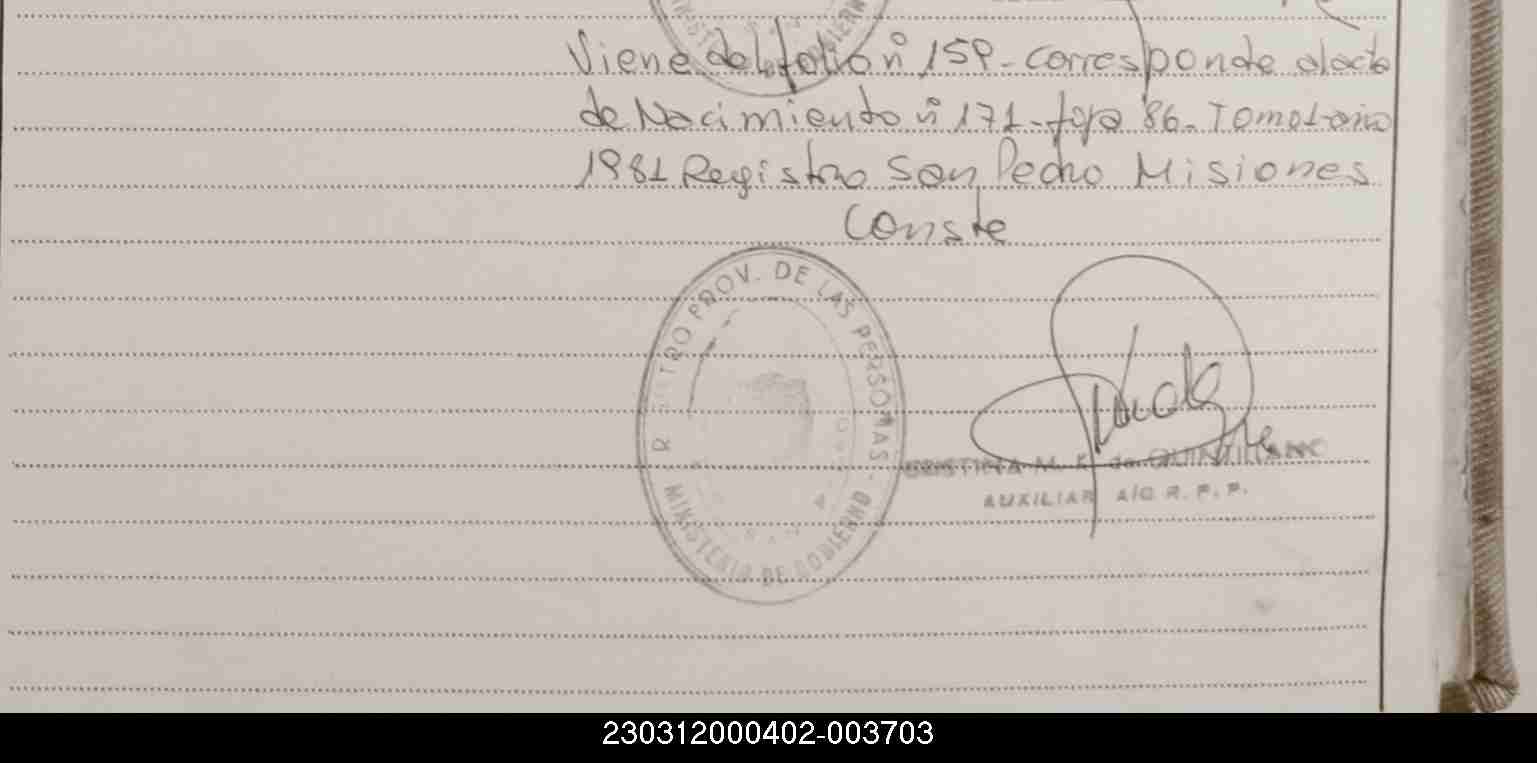 Viene del folio nº 159 - corresponde al acta
de Nacimiento nº 171 - foja 86 - Tomo 1 año
1981 Registro San Pedro Misiones
Conste
TRO PROV. DE LAS PERSONAS
MINISTERIO DE GOBIERNO
CRISTINA M. F. de QUINTILLAN
AUXILIAR A/C R. P. P.
230312000402-003703